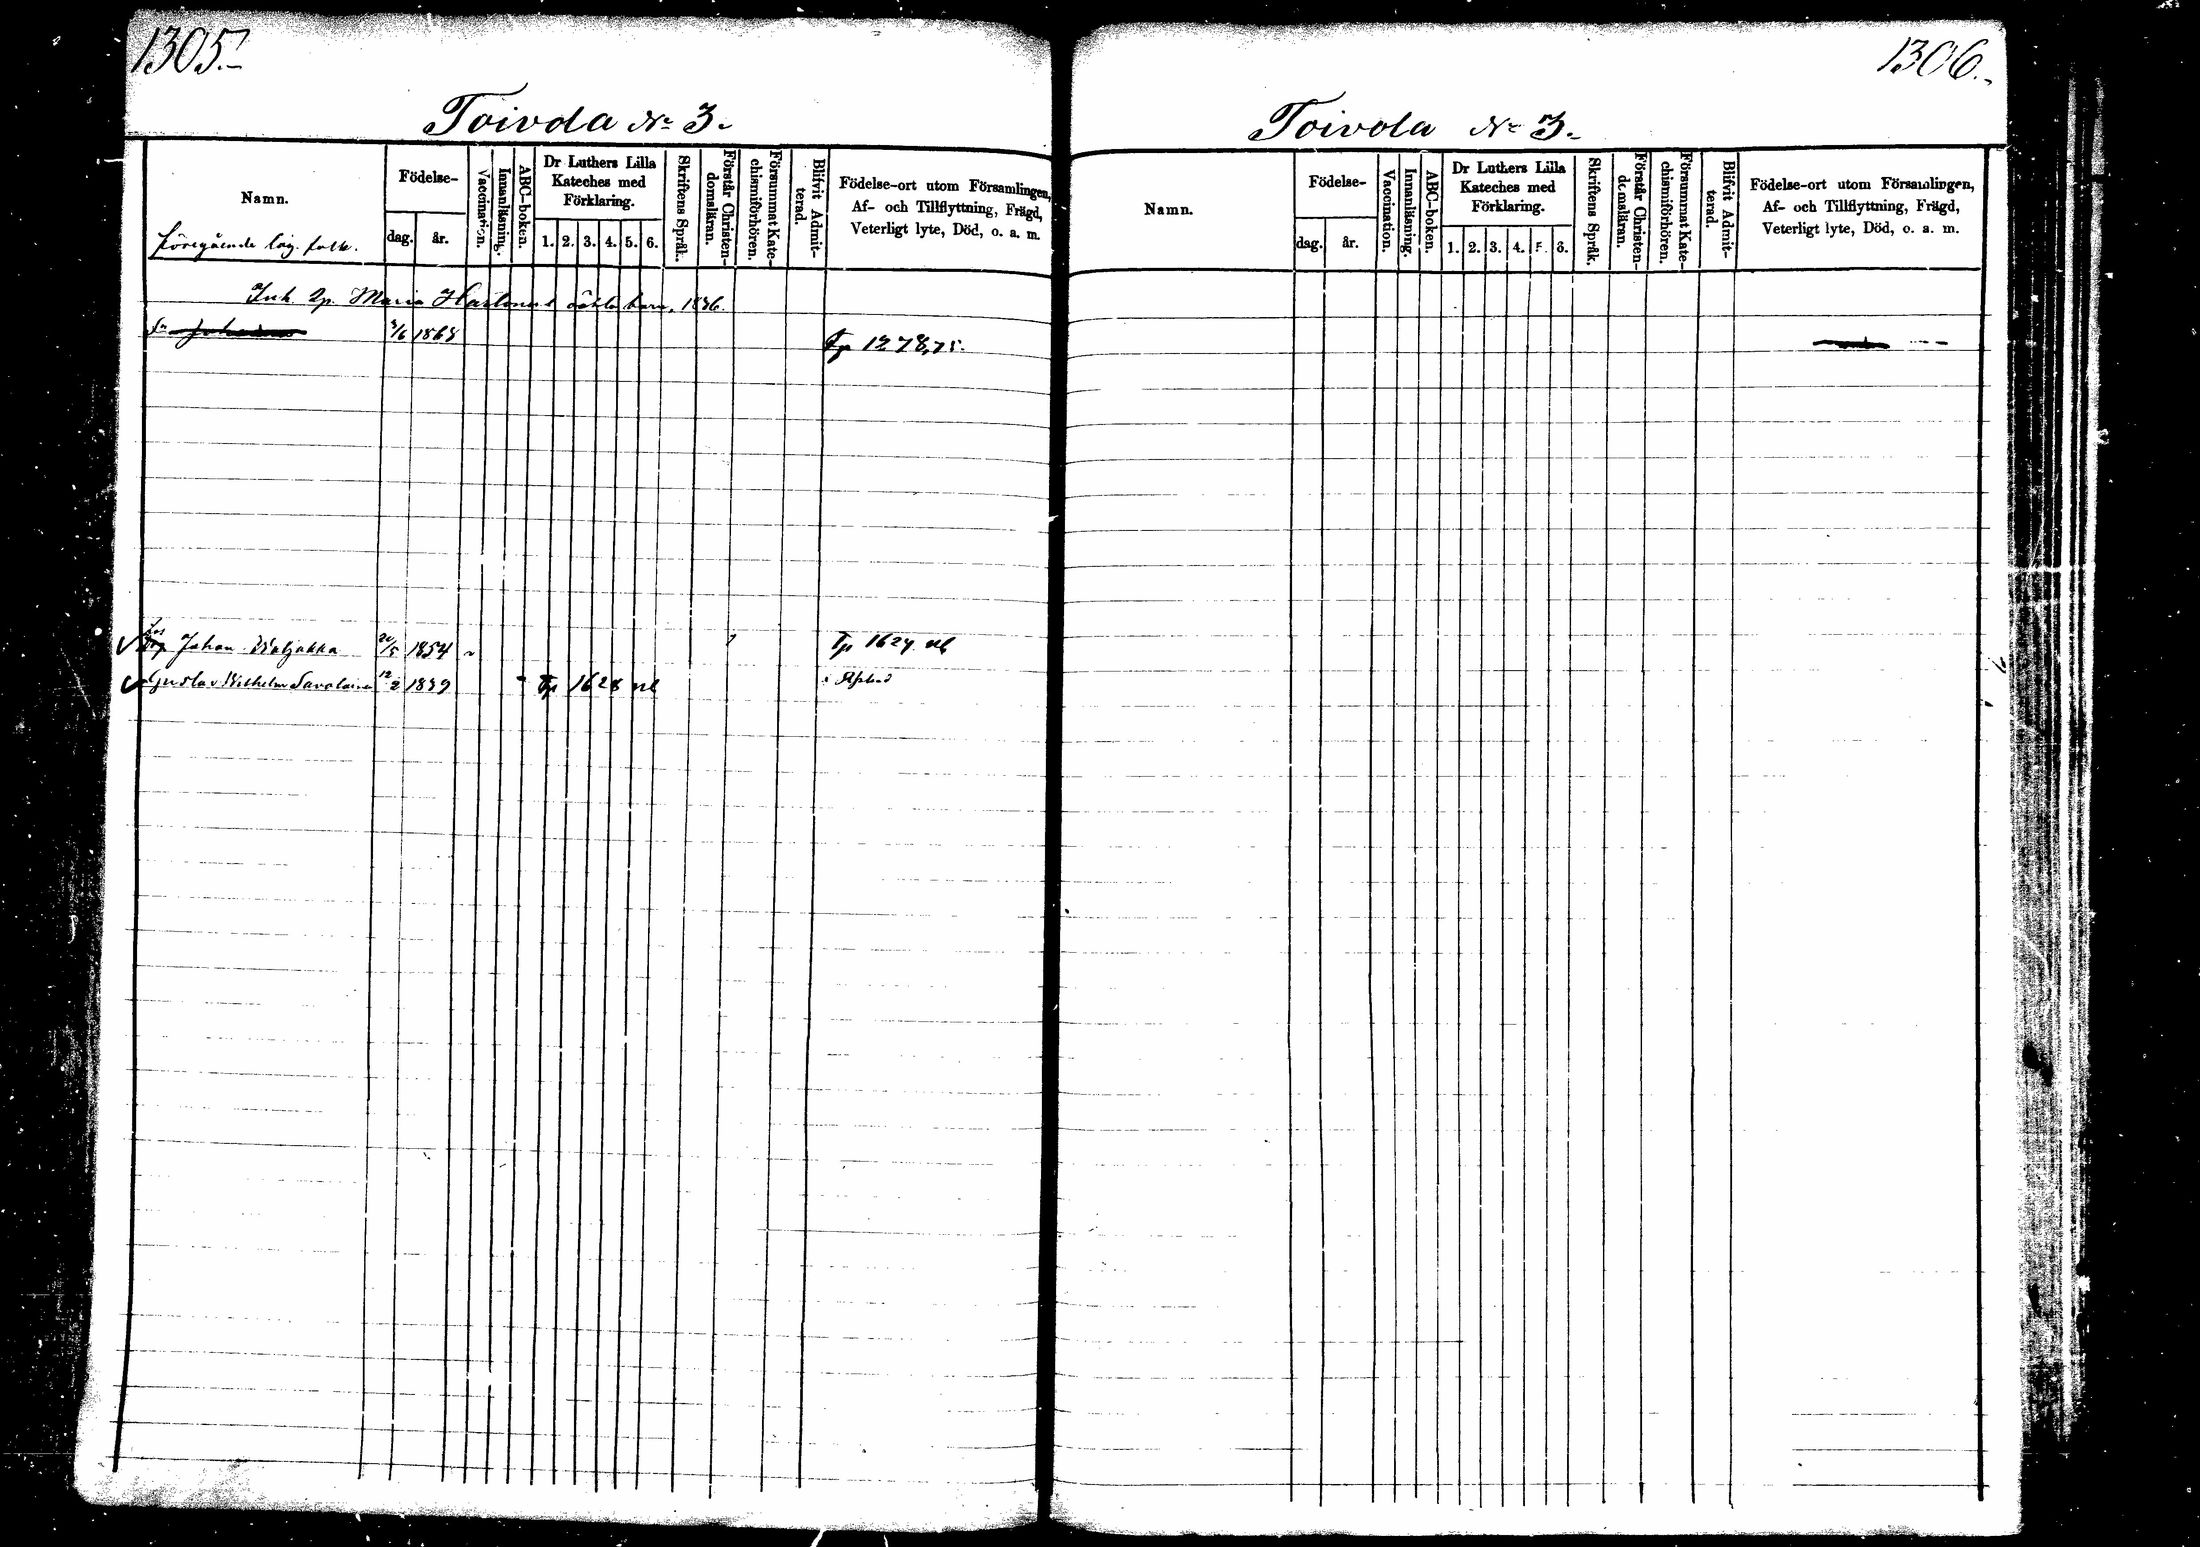 1305.
Toivola No 3.
Namn.
Föregående läg. folk.
Födelse-
dag. år.
Vaccination.
Innanläsning.
ABC-boken.
Dr Luthers Lilla
Kateches med
Förklaring.
1. 2. 3. 4. 5. 6.
Skriftens Språk.
Förstår Christen-
domsläran.
Försummat Kate-
chismiförhören.
Blifvit Admit-
terad.
Födelse-ort utom Församlingen,
Af- och Tillflyttning, Frägd,
Veterligt lyte, Död, o. a. m.
Inh. Maria barn, 1836.
1868
1278,75.
Johan 20/5 1854 1624
Gustav Wilhelm Savolainen 12/2 1839 1628
1306.
Toivola No 3.
Namn.
Födelse-
dag. år.
Vaccination.
Innanläsning.
ABC-boken.
Dr Luthers Lilla
Kateches med
Förklaring.
1. 2. 3. 4. 5. 6.
Skriftens Språk.
Förstår Christen-
domsläran.
Försummat Kate-
chismiförhören.
Blifvit Admit-
terad.
Födelse-ort utom Församlingen,
Af- och Tillflyttning, Frägd,
Veterligt lyte, Död, o. a. m.